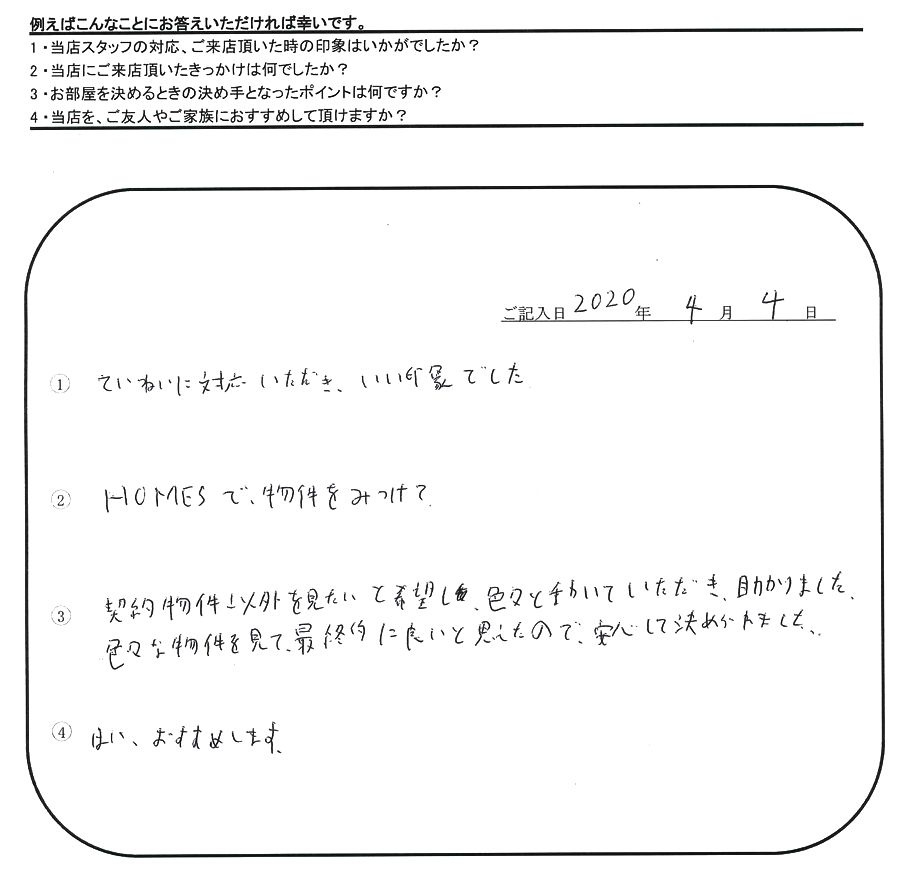 例えばこんなことにお答えいただければ幸いです。
1・当店スタッフの対応、ご来店頂いた時の印象はいかがでしたか？
2・当店にご来店頂いたきっかけは何でしたか？
3・お部屋を決めるときの決め手となったポイントは何ですか？
4・当店を、ご友人やご家族におすすめして頂けますか？
ご記入日 2020年 4月 4日
① ていねいに対応いただき、いい印象でした
② HOMESで、物件をみつけて
③ 契約物件以外を見たいと希望し、色々と動いていただき、助かりました、
色々な物件を見て、最終的に良いと思えたので、安心して決められました、
④ はい、おすすめします、